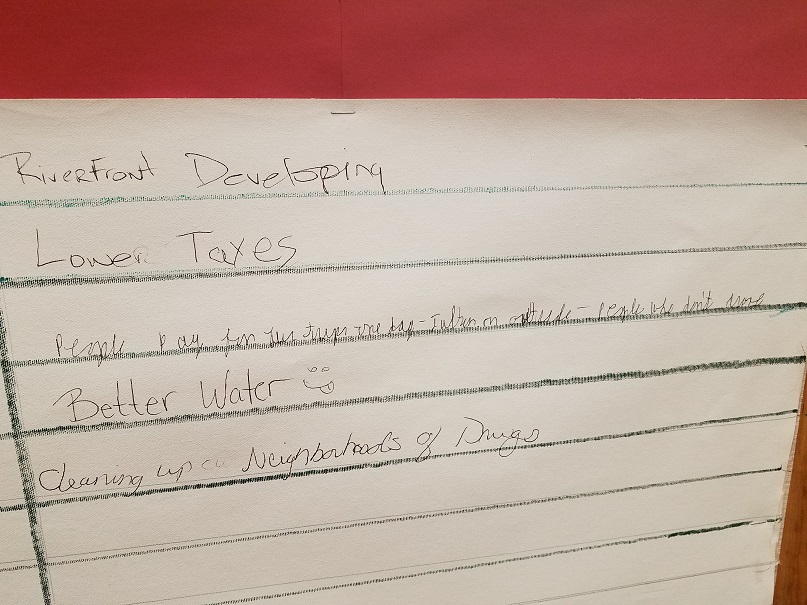 RiverFront Developing
Lower Taxes
People Pay for bus trips one day - outside - People who don't drive
Better Water
Cleaning up Neighborhoods of Drugs